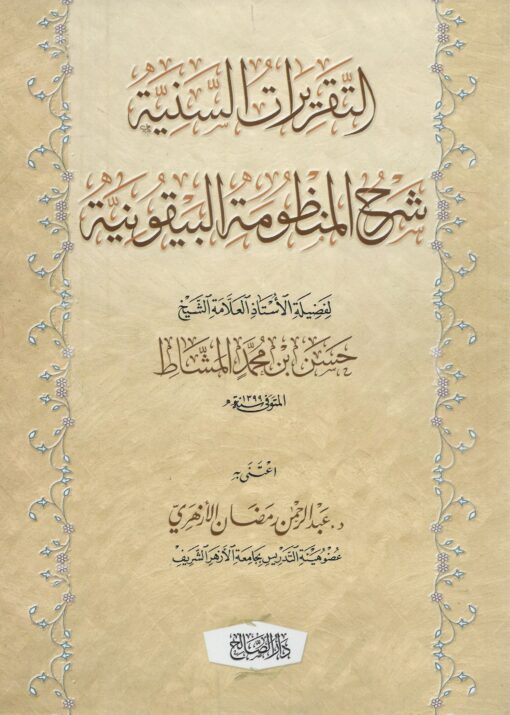 التَّقْرِيرَاتُ السَّنِيَّة
شَرْحُ المَنْظُومَةِ البَيْقُونِيَّة
لِفَضِيلَةِ الأُسْتَاذِ العَلَّامَةِ الشَّيْخ
حَسَن بْن مُحَمَّد المَشَّاط
المتوفى سنة ١٣٩٩هـ
اعْتَنَى بِهِ
د. عبد الرحمن رمضان الأزهري
عضو هيئة التدريس بجامعة الأزهر الشريف
دار الصالح